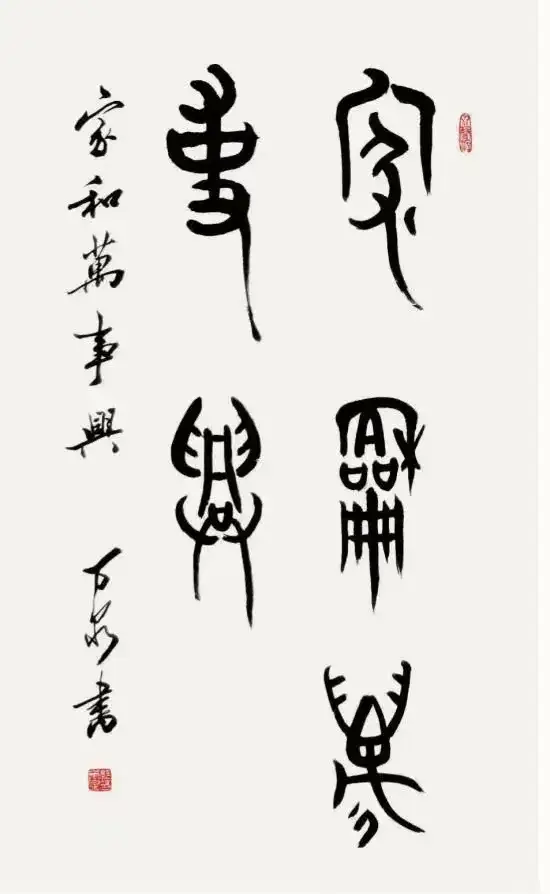 家龢萬
事興
家和萬事興 書